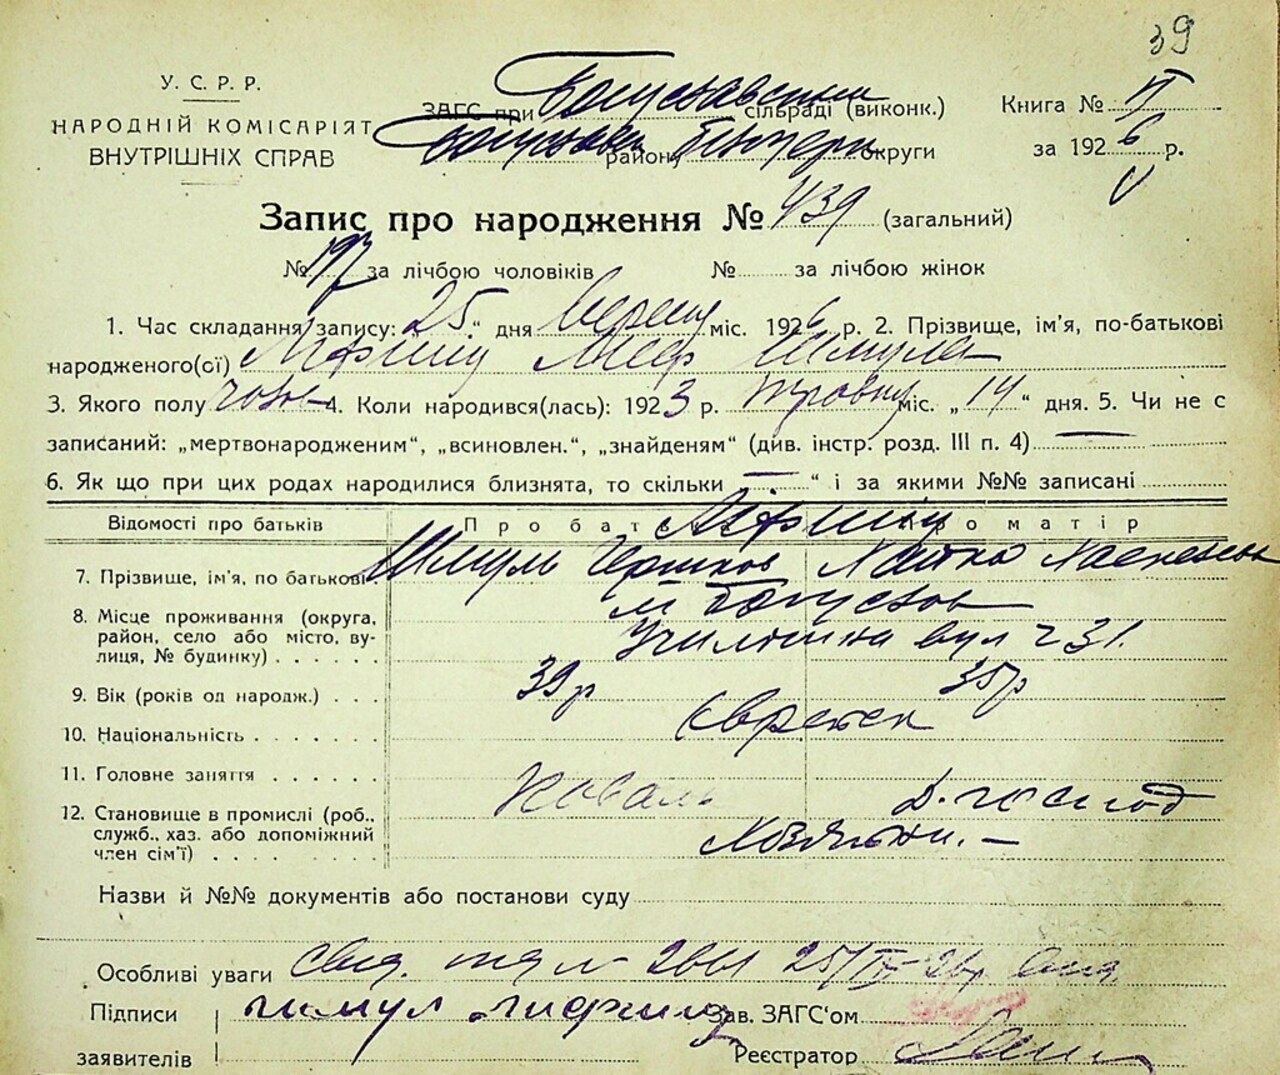 39
У. С. Р. Р.
НАРОДНІЙ КОМІСАРІЯТ
ВНУТРІШНІХ СПРАВ
ЗАГС при Богуславським сільраді (виконк.)
району округи
Книга № II
за 1926 р.
Запис про народження № 439 (загальний)
№ 197 за лічбою чоловіків № за лічбою жінок
1. Час складання запису: „25“ дня міс. 1926 р. 2. Прізвище, ім'я, по-батькові
народженого(ої) Меер Шмулев
3. Якого полу чолов 4. Коли народився(лась): 1923 р. травня міс. „14“ дня. 5. Чи не є
записаний: „мертвонародженим“, „всиновлен.“, „знайденям“ (див. інстр. розд. III п. 4) —
6. Як що при цих родах народилися близнята, то скільки —“ і за якими №№ записані
Відомості про батьків Про батька Про матір
7. Прізвище, ім'я, по батькові Шмуль Гершков Хайка
8. Місце проживання (округа, район, село або місто, вулиця, № будинку) м Богуслав
вул ч 31.
9. Вік (років од народж.) 39 р 35 р
10. Національність Єврейск
11. Головне заняття Коваль д. господ
12. Становище в промислі (роб., служб., хаз. або допоміжний член сім'ї) —
Назви й №№ документів або постанови суду
Особливі уваги 25/IX 26 р
Підписи
заявителів
Зав. ЗАГС'ом
Реєстратор